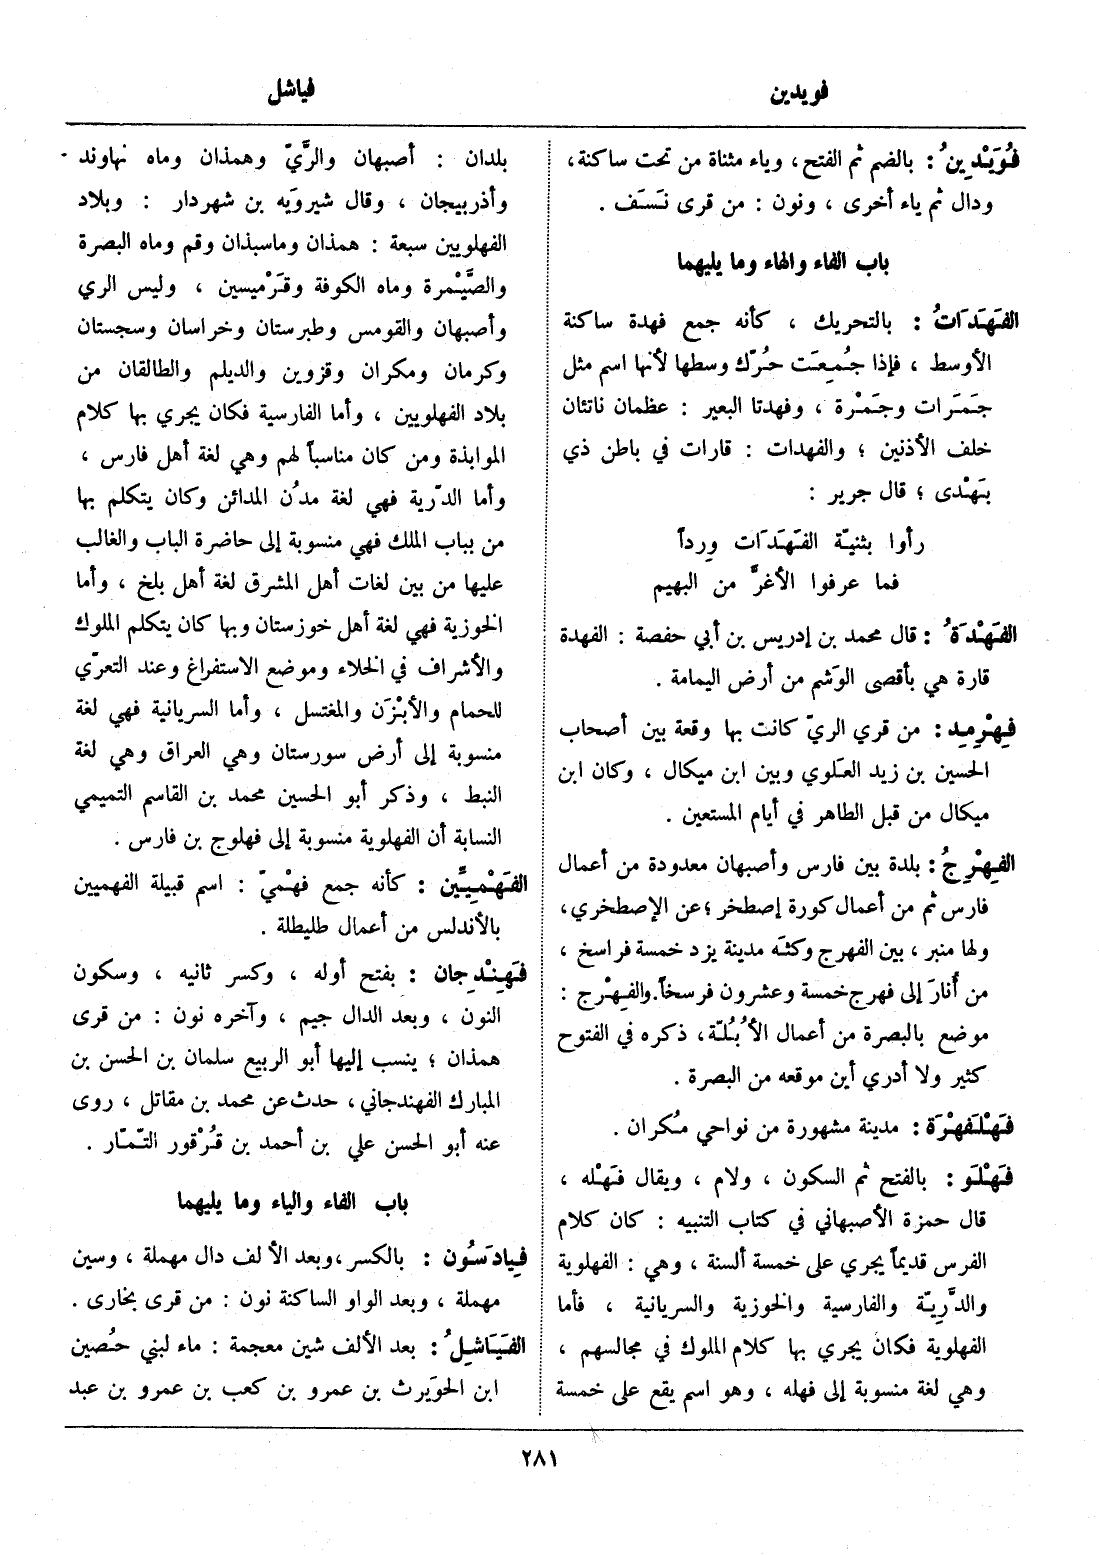 فويدين
فياشل
فُوَيْدِينُ : بالضم ثم الفتح ، وياء مثناة من تحت ساكنة ،
ودال ثم ياء أخرى ، ونون : من قرى نَسَف .
باب الفاء والهاء وما يليهما
الفَهَدَاتُ : بالتحريك ، كأنه جمع فهدة ساكنة
الأوسط ، فإذا جُمِعَت حُرّك وسطها لأنها اسم مثل
جَمَرات وجَمْرة ، وفهدتا البعير : عظمان ناتئان
خلف الأذنين ؛ والفهدات : قارات في باطن ذي
بَهْدى ؛ قال جرير :
رأوا بثنيّة الفَهَدَات وِرداً
فما عرفوا الأغرَّ من البهيم
الفَهْدَةُ : قال محمد بن إدريس بن أبي حفصة : الفهدة
قارة هي بأقصى الوَشم من أرض اليمامة .
فِهْرِمِد : من قري الريّ كانت بها وقعة بين أصحاب
الحسين بن زيد العلوي وبين ابن ميكال ، وكان ابن
ميكال من قبل الطاهر في أيام المستعين .
الفِهْرِجُ : بلدة بين فارس وأصبهان معدودة من أعمال
فارس ثم من أعمال كورة إصطخر ؛ عن الإصطخري ،
ولها منبر ، بين الفهرج وكثَه مدينة يزد خمسة فراسخ ،
من أُنارَ إلى فهرج خمسة وعشرون فرسخاً. والفِهْرج :
موضع بالبصرة من أعمال الأُبُلّة ، ذكره في الفتوح
كثير ولا أدري أين موقعه من البصرة .
فَهْلَفَهْرَة : مدينة مشهورة من نواحي مُكران .
فَهْلَو : بالفتح ثم السكون ، ولام ، ويقال فَهْله ،
قال حمزة الأصبهاني في كتاب التنبيه : كان كلام
الفرس قديماً يجري على خمسة ألسنة ، وهي : الفهلوية
والدَّرِيّة والفارسية والخوزية والسريانية ، فأما
الفهلوية فكان يجري بها كلام الملوك في مجالسهم ،
وهي لغة منسوبة إلى فهله ، وهو اسم يقع على خمسة
بلدان : أصبهان والرَّيّ وهمذان وماه نهاوند
وأذربيجان ، وقال شيرويَه بن شهردار : وبلاد
الفهلويين سبعة : همذان وماسبذان وقم وماه البصرة
والصَّيْمرة وماه الكوفة وقَرْميسين ، وليس الري
وأصبهان والقومس وطبرستان وخراسان وسجستان
وكرمان ومكران وقزوين والديلم والطالقان من
بلاد الفهلويين ، وأما الفارسية فكان يجري بها كلام
الموابذة ومن كان مناسباً لهم وهي لغة أهل فارس ،
وأما الدّرية فهي لغة مدُن المدائن وكان يتكلم بها
من بباب الملك فهي منسوبة إلى حاضرة الباب والغالب
عليها من بين لغات أهل المشرق لغة أهل بلخ ، وأما
الخوزية فهي لغة أهل خوزستان وبها كان يتكلم الملوك
والأشراف في الخلاء وموضع الاستفراغ وعند التعرّي
للحمام والأبْزَن والمغتسل ، وأما السريانية فهي لغة
منسوبة إلى أرض سورستان وهي العراق وهي لغة
النبط ، وذكر أبو الحسين محمد بن القاسم التميمي
النسابة أن الفهلوية منسوبة إلى فهلوج بن فارس .
الفَهْمِيِّين : كأنه جمع فهْميّ : اسم قبيلة الفهميين
بالأندلس من أعمال طليطلة .
فَهِنْدِجان : بفتح أوله ، وكسر ثانيه ، وسكون
النون ، وبعد الدال جيم ، وآخره نون : من قرى
همذان ؛ ينسب إليها أبو الربيع سلمان بن الحسن بن
المبارك الفهندجاني ، حدث عن محمد بن مقاتل ، روى
عنه أبو الحسن علي بن أحمد بن قُرْقور التمّار .
باب الفاء والياء وما يليهما
فِيادَسُون : بالكسر ، وبعد الألف دال مهملة ، وسين
مهملة ، وبعد الواو الساكنة نون : من قرى بخارى .
الفَيَاشِلُ : بعد الألف شين معجمة : ماء لبني حُصين
ابن الحوَيرث بن عمرو بن كعب بن عمرو بن عبد
٢٨١